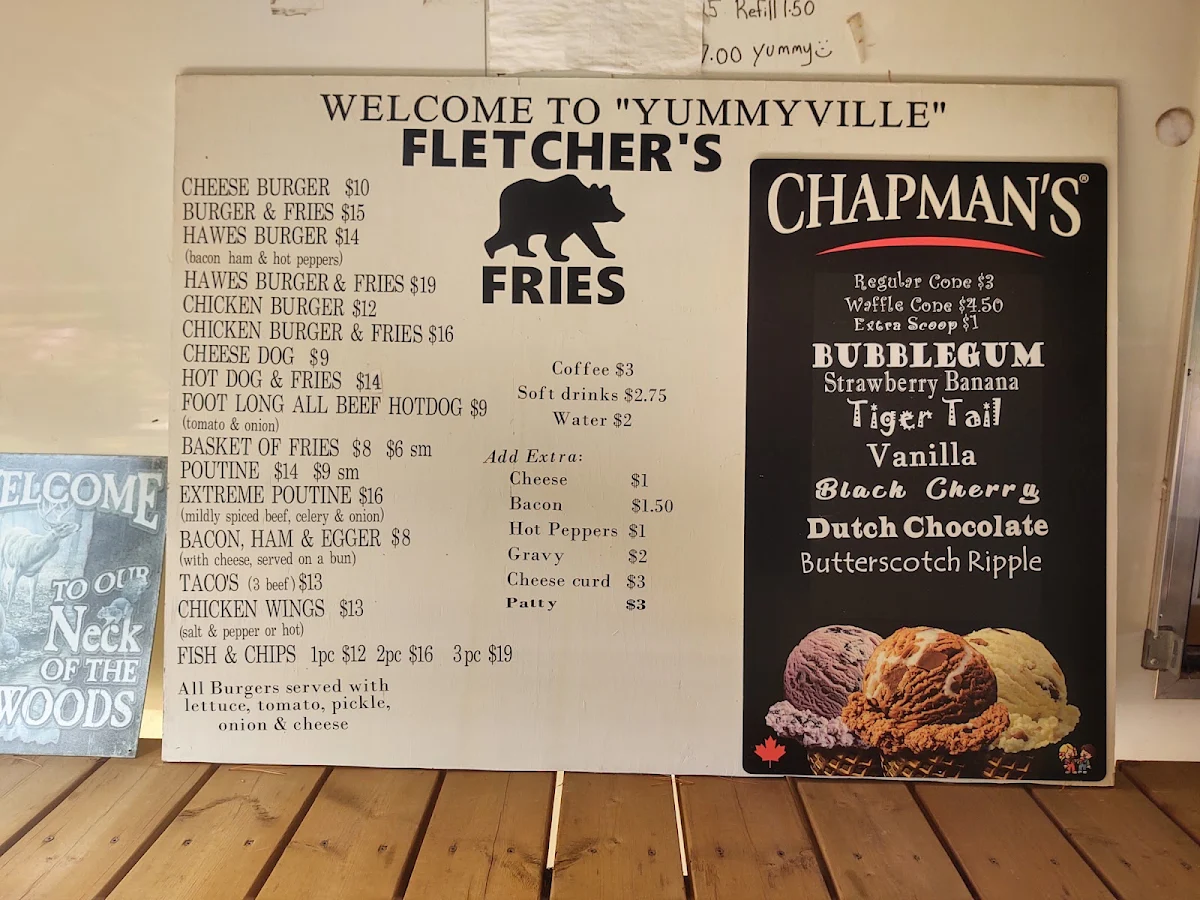 Refill 1.50
7.00 Yummy
WELCOME TO "YUMMYVILLE"
FLETCHER'S
FRIES
CHEESE BURGER $10
BURGER & FRIES $15
HAWES BURGER $14
(bacon ham & hot peppers)
HAWES BURGER & FRIES $19
CHICKEN BURGER $12
CHICKEN BURGER & FRIES $16
CHEESE DOG $9
HOT DOG & FRIES $14
FOOT LONG ALL BEEF HOTDOG $9
(tomato & onion)
BASKET OF FRIES $8 $6 sm
POUTINE $14 $9 sm
EXTREME POUTINE $16
(mildly spiced beef, celery & onion)
BACON, HAM & EGGER $8
(with cheese, served on a bun)
TACO'S (3 beef) $13
CHICKEN WINGS $13
(salt & pepper or hot)
FISH & CHIPS 1pc $12 2pc $16 3pc $19
All Burgers served with
lettuce, tomato, pickle,
onion & cheese
Coffee $3
Soft drinks $2.75
Water $2
Add Extra:
Cheese $1
Bacon $1.50
Hot Peppers $1
Gravy $2
Cheese curd $3
Patty $3
CHAPMAN'S®
Regular Cone $3
Waffle Cone $4.50
Extra Scoop $1
BUBBLEGUM
Strawberry Banana
Tiger Tail
Vanilla
Black Cherry
Dutch Chocolate
Butterscotch Ripple
ELCOME
TO OUR
Neck
OF THE
WOODS